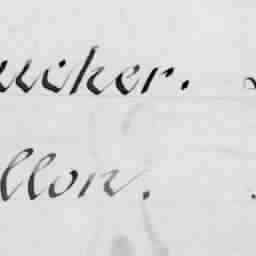 ucker.
llon.